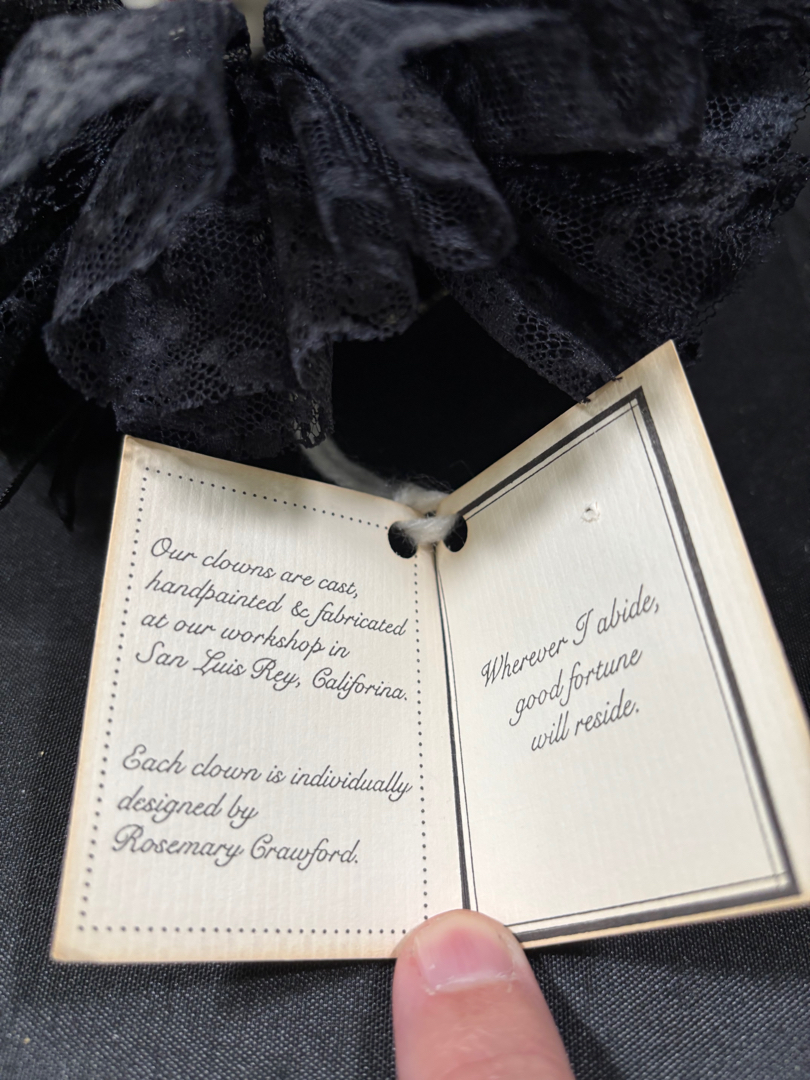 Our clowns are cast,
handpainted & fabricated
at our workshop in
San Luis Rey, Califorina.
Each clown is individually
designed by
Rosemary Crawford.
Wherever I abide,
good fortune
will reside.